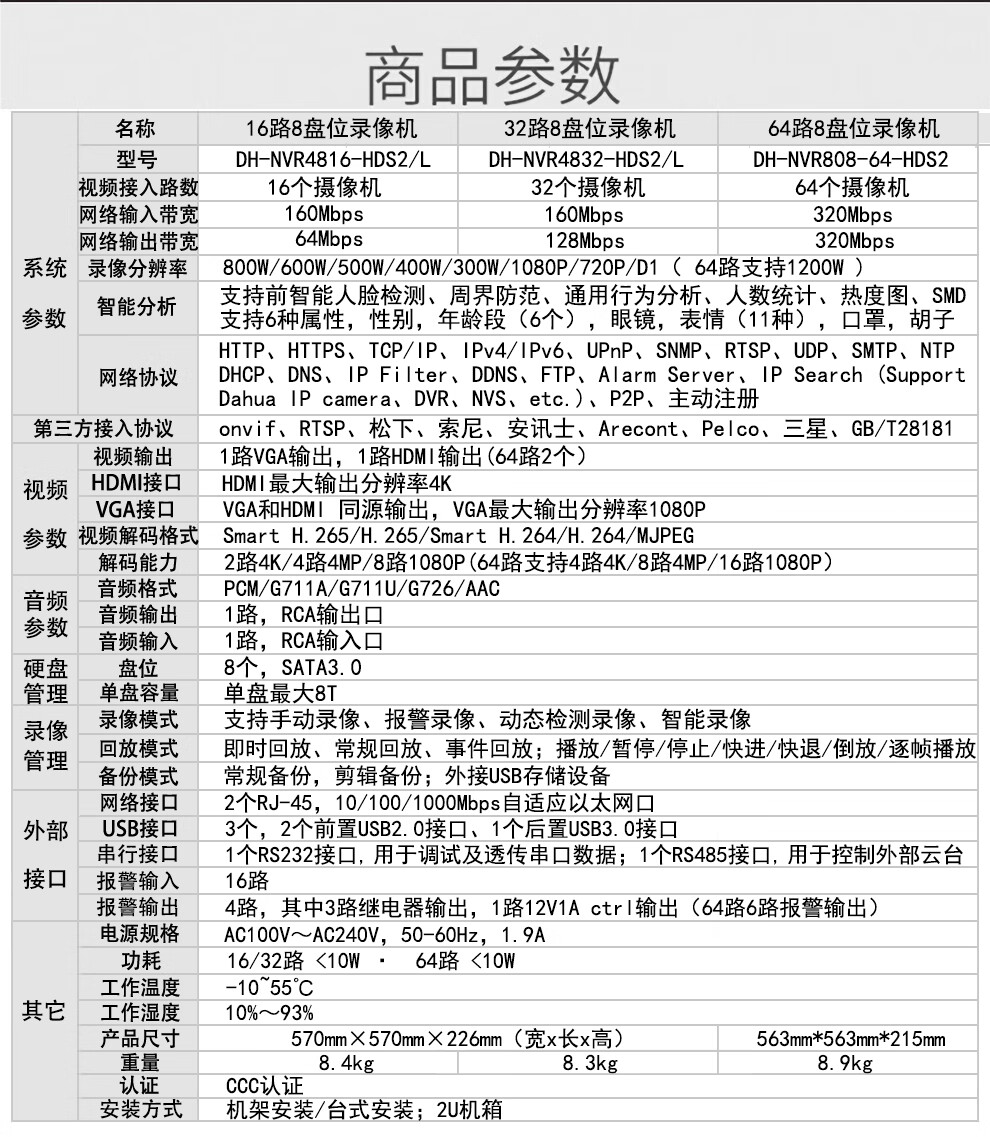 商品参数
名称 16路8盘位录像机 32路8盘位录像机 64路8盘位录像机
型号 DH-NVR4816-HDS2/L DH-NVR4832-HDS2/L DH-NVR808-64-HDS2
视频接入路数 16个摄像机 32个摄像机 64个摄像机
网络输入带宽 160Mbps 160Mbps 320Mbps
网络输出带宽 64Mbps 128Mbps 320Mbps
系统
参数
录像分辨率 800W/600W/500W/400W/300W/1080P/720P/D1（ 64路支持1200W ）
智能分析 支持前智能人脸检测、周界防范、通用行为分析、人数统计、热度图、SMD
支持6种属性，性别，年龄段（6个），眼镜，表情（11种），口罩，胡子
网络协议 HTTP、HTTPS、TCP/IP、IPv4/IPv6、UPnP、SNMP、RTSP、UDP、SMTP、NTP
DHCP、DNS、IP Filter、DDNS、FTP、Alarm Server、IP Search (Support
Dahua IP camera、DVR、NVS、etc.)、P2P、主动注册
第三方接入协议 onvif、RTSP、松下、索尼、安讯士、Arecont、Pelco、三星、GB/T28181
视频
参数
视频输出 1路VGA输出，1路HDMI输出(64路2个）
HDMI接口 HDMI最大输出分辨率4K
VGA接口 VGA和HDMI 同源输出，VGA最大输出分辨率1080P
视频解码格式 Smart H.265/H.265/Smart H.264/H.264/MJPEG
解码能力 2路4K/4路4MP/8路1080P(64路支持4路4K/8路4MP/16路1080P）
音频
参数
音频格式 PCM/G711A/G711U/G726/AAC
音频输出 1路，RCA输出口
音频输入 1路，RCA输入口
硬盘
管理
盘位 8个，SATA3.0
单盘容量 单盘最大8T
录像
管理
录像模式 支持手动录像、报警录像、动态检测录像、智能录像
回放模式 即时回放、常规回放、事件回放；播放/暂停/停止/快进/快退/倒放/逐帧播放
备份模式 常规备份，剪辑备份；外接USB存储设备
外部
接口
网络接口 2个RJ-45，10/100/1000Mbps自适应以太网口
USB接口 3个，2个前置USB2.0接口、1个后置USB3.0接口
串行接口 1个RS232接口,用于调试及透传串口数据；1个RS485接口,用于控制外部云台
报警输入 16路
报警输出 4路，其中3路继电器输出，1路12V1A ctrl输出（64路6路报警输出）
其它
电源规格 AC100V～AC240V，50-60Hz，1.9A
功耗 16/32路 <10W · 64路 <10W
工作温度 -10~55℃
工作湿度 10%～93%
产品尺寸 570mm×570mm×226mm（宽x长x高） 563mm*563mm*215mm
重量 8.4kg 8.3kg 8.9kg
认证 CCC认证
安装方式 机架安装/台式安装；2U机箱